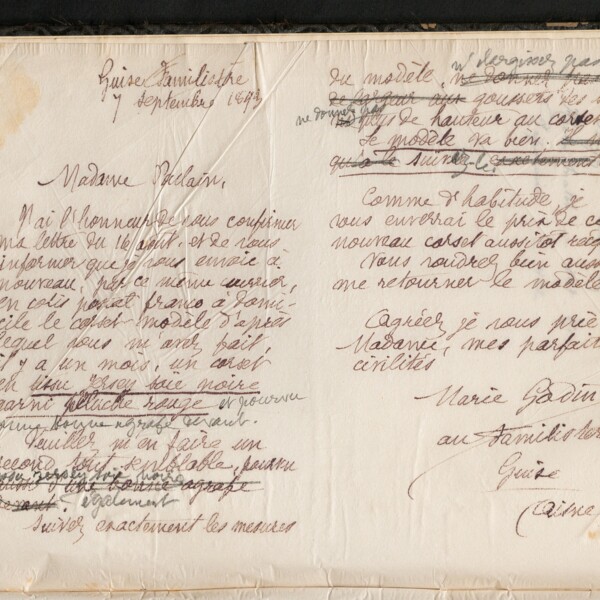 Guise Familistère
7 septembre 189
Madame Pallain,
J'ai l'honneur de vous confirmer
ma lettre du 16 août, et de vous
informer que je vous envoie à
nouveau, par ce même courrier,
en colis postal franco à domi-
cile le corset modèle d'après
lequel vous m'avez fait,
il y a un mois, un corset
en tissu jersey soie noire
garni peluche rouge et pourvu
d'une bonne agrafe devant.
Veuillez m'en faire un
second tout semblable, pourvu
jersey soie noire
aussi d'une bonne agrafe
devant. également
Suivez exactement les mesures
n'élargissez pas
du modèle, ne donnez pas
de largeur aux goussets des
ne donnez pas
plus de hauteur au corset
Le modèle va bien.
qu'à le suivre exactement
Comme d'habitude, je
vous enverrai le prix de ce
nouveau corset aussitôt reçu
Vous voudrez bien aussi
me retourner le modèle
Agréez, je vous prie
Madame, mes parfaites
civilités
Marie Godin
au Familistère
Guise
(Aisne